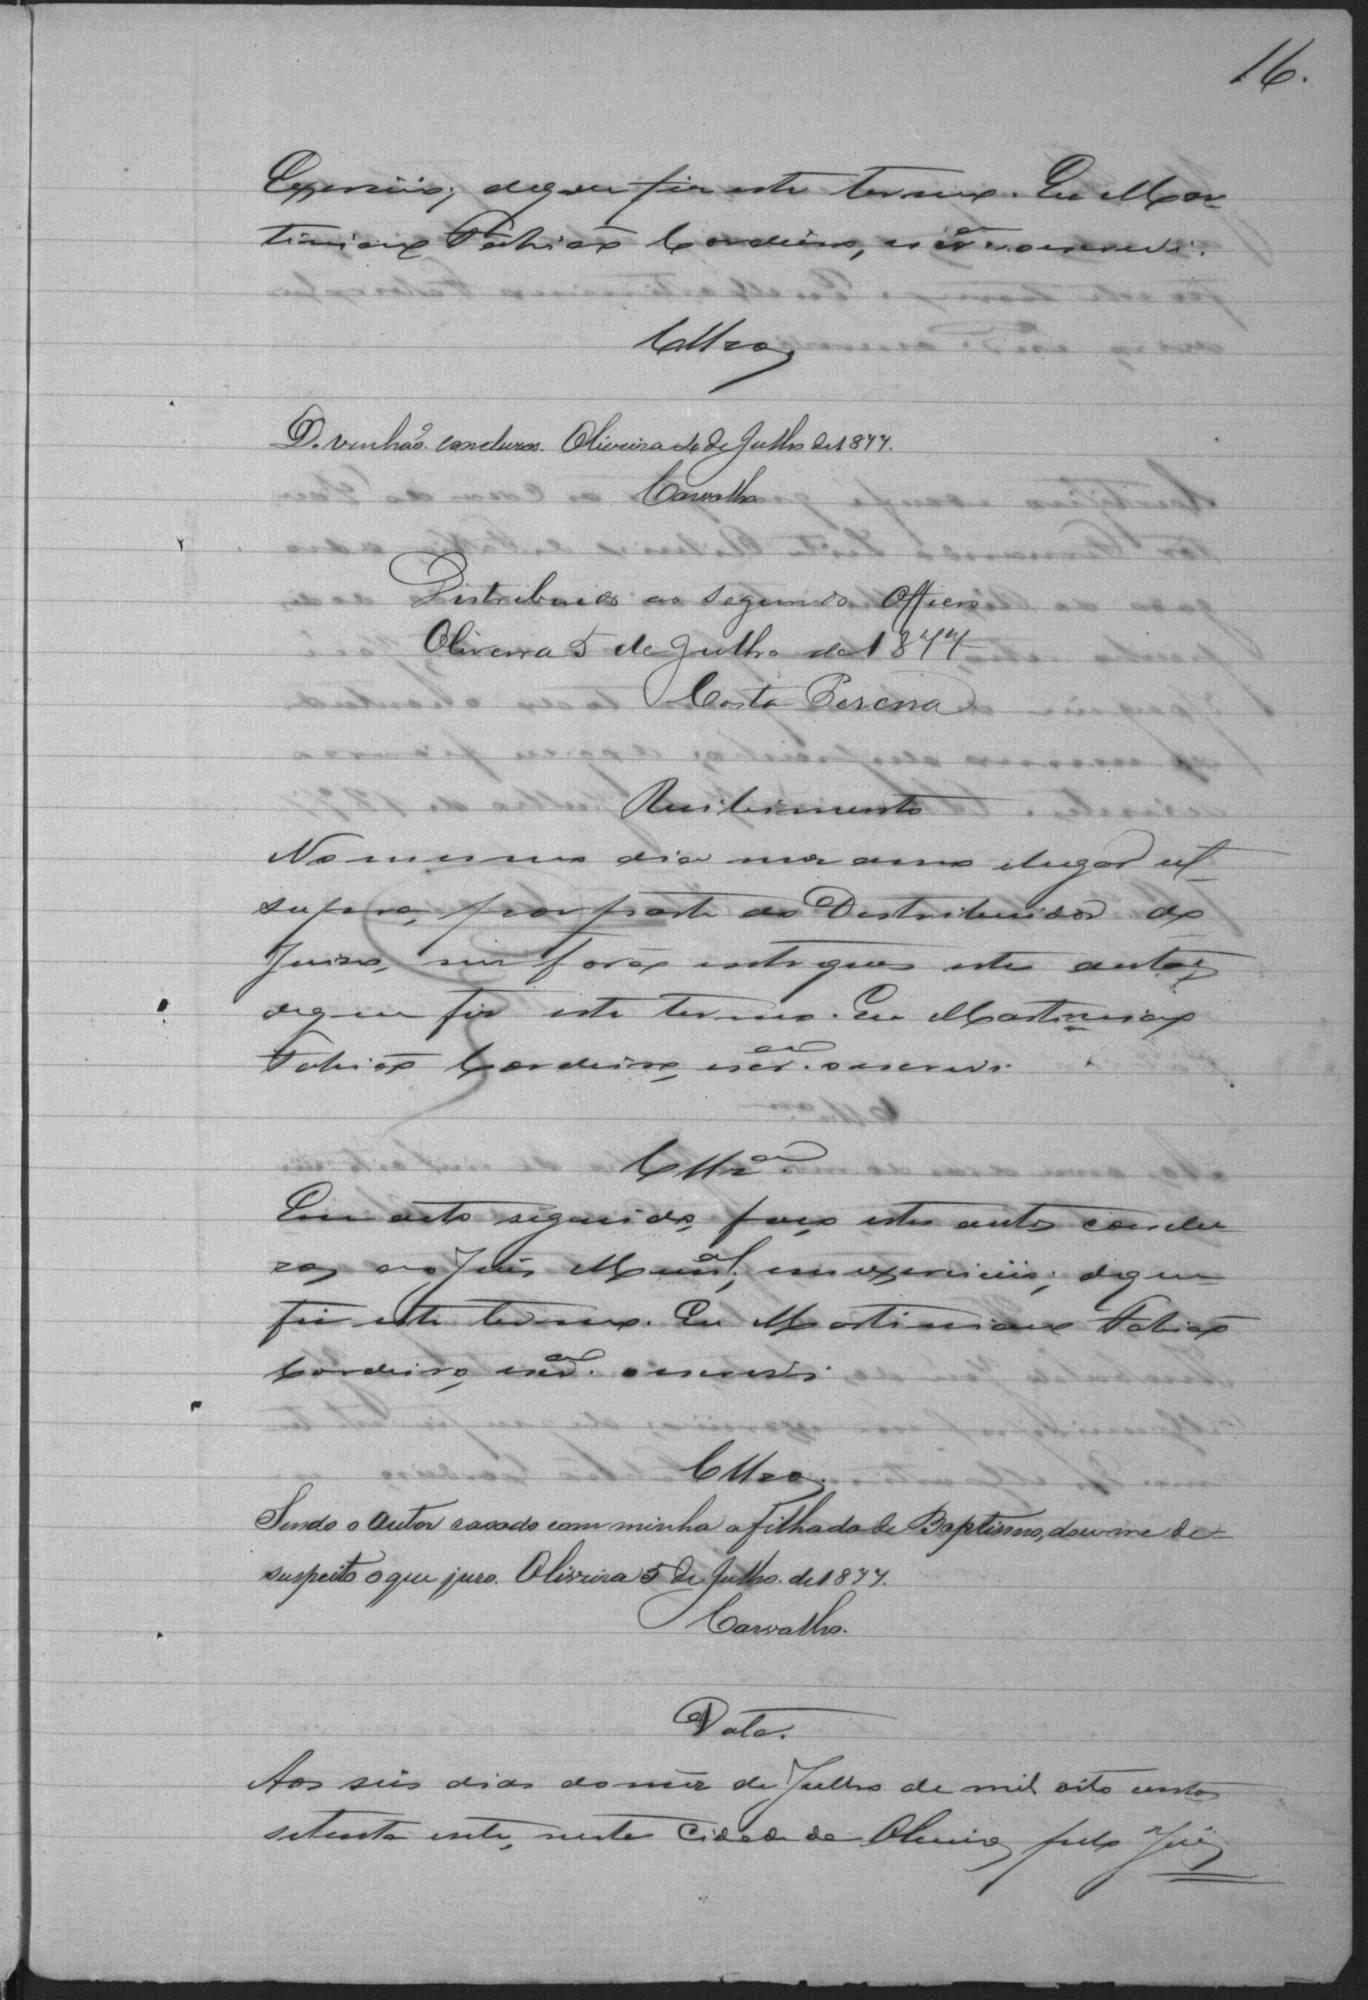 16.
Exercicio; de que fiz este termo. Eu Mar-
tiniano Fabião Cordeiro, escr.am o escrevi.
Cllzos
D. venhão conclusos. Oliveira 4 de Julho de 1877.
Carvalho
Distribuido ao Segundo Officio
Oliveira 5 de Julho de 1877
Costa Pereira
Recebimento
No mesmo dia mez anno e lugar ut
supra, por parte do Destribuidor do
Juizo, me forão entregues estes autos,
de que fiz este termo. Eu Martiniano
Fabião Cordeiro, escr.am o escrevi.
Cllz.am
Em acto seguido, faço estes autos conclu
zos ao Juiz Mun.al, em exercicio; de que
fiz este termo. Eu Martiniano Fabião
Cordeiro, escr.am o escrevi.
Cllzos.
Sendo o autor casado com minha afilhada de Baptismo, dou-me de
suspeito o que juro. Oliveira 5 de Julho de 1877.
Carvalho.
Data.
Aos seis dias do mez de Julho de mil oito centos
setenta e sete, nesta Cidade de Oliveira, pelo Juiz